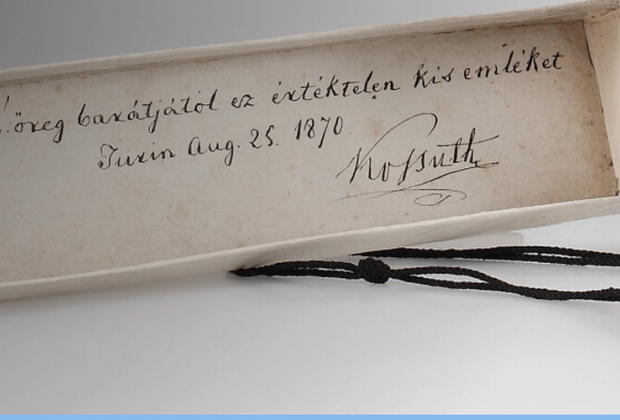 öreg barátjától ez értéktelen kis emléket
Turin Aug. 25. 1870.
Kossuth